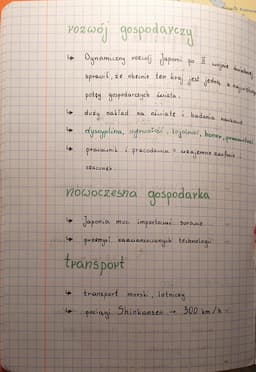 rozwój gospodarczy
↳ Dynamiczny rozwój Japonii po II wojnie światowej
sprawił, że obecnie ten kraj jest jedną z największych
potęg gospodarczych świata.
↳ duży nakład na oświatę i badania naukowe
↳ dyscyplina, uczciwość, lojalność, honor, pracowitość
↳ pracownik i pracodawca = wzajemne zaufanie i
szacunek
nowoczesna gospodarka
↳ Japonia musi importować surowce
↳ przemysł zaawansowanych technologii
transport
↳ transport morski, lotniczy
↳ pociągi Shinkansen → 300 km/h